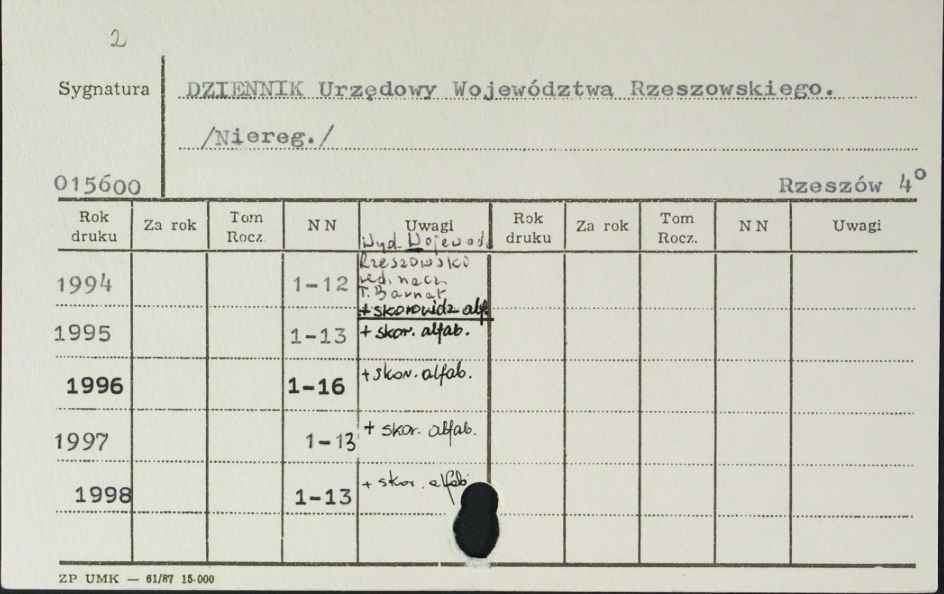 2
Sygnatura DZIENNIK Urzędowy Województwa Rzeszowskiego.
/Niereg./
015600 Rzeszów 4°
Rok druku Za rok Tom Rocz. NN Uwagi Rok druku Za rok Tom Rocz. NN Uwagi
Wyd. Wojewoda
Rzeszowski
1994 1-12 red. nacz.
T. Barnat
+ skorowidz alf.
1995 1-13 + skor. alfab.
1996 1-16 + skor. alfab.
1997 1-13 + skor. alfab.
1998 1-13 + skor. alfab.
ZP UMK — 61/87 15-000